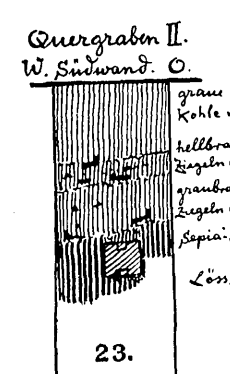 Quergraben II.
W. Südwand. O.
graue
Kohle
hellbra
Ziegeln
graubra
Ziegeln
Sepia-
Löss
23.